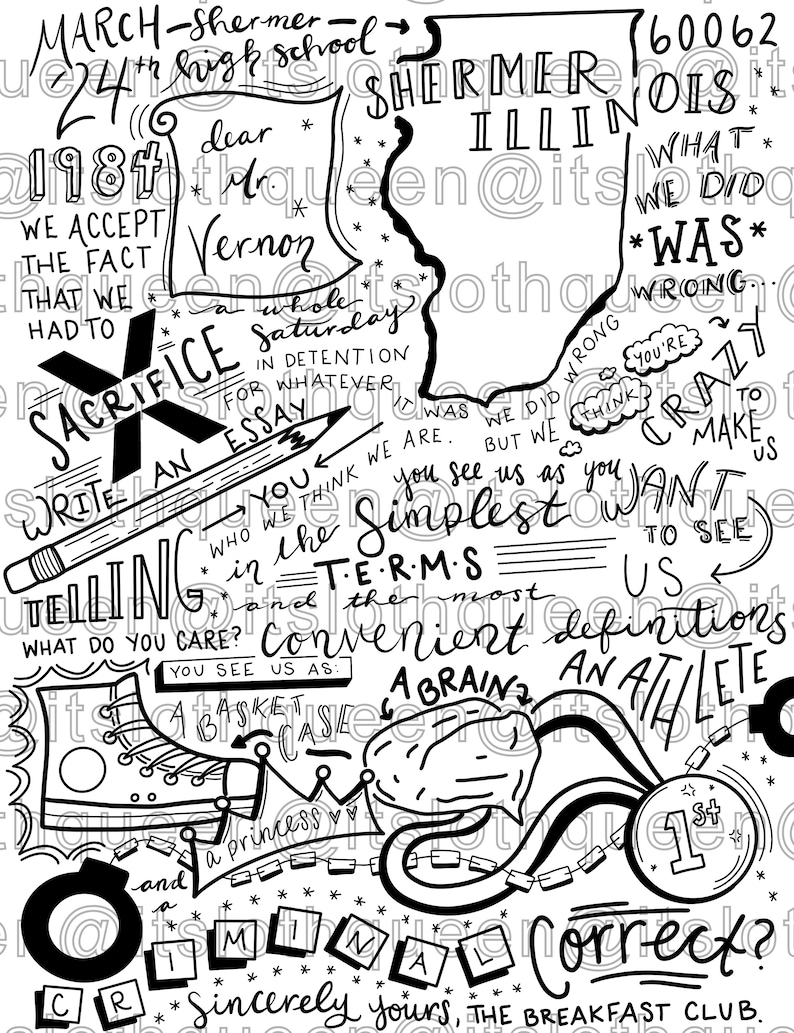 MARCH – Shermer
24th high school
SHERMER
ILLINOIS
60062
1984
dear
Mr.
Vernon
WE ACCEPT
THE FACT
THAT WE
HAD TO
SACRIFICE
a whole
Saturday
IN DETENTION
FOR WHATEVER
IT WAS
WE DID
WRONG
WHAT
WE DID
*WAS*
WRONG...
BUT WE
THINK
YOU'RE
CRAZY
TO
MAKE
US
WRITE AN ESSAY
TELLING
YOU
WHO WE THINK WE ARE.
WHAT DO YOU CARE?
you see us as you
WANT
TO SEE
US
in the Simplest
T·E·R·M·S
and the most
convenient definitions
YOU SEE US AS:
A BRAIN
AN ATHLETE
A BASKET
CASE
a princess
1st
and
a
CRIMINAL
Correct?
Sincerely yours, THE BREAKFAST CLUB.
itslothqueen@itslothqueen@itslothqueen